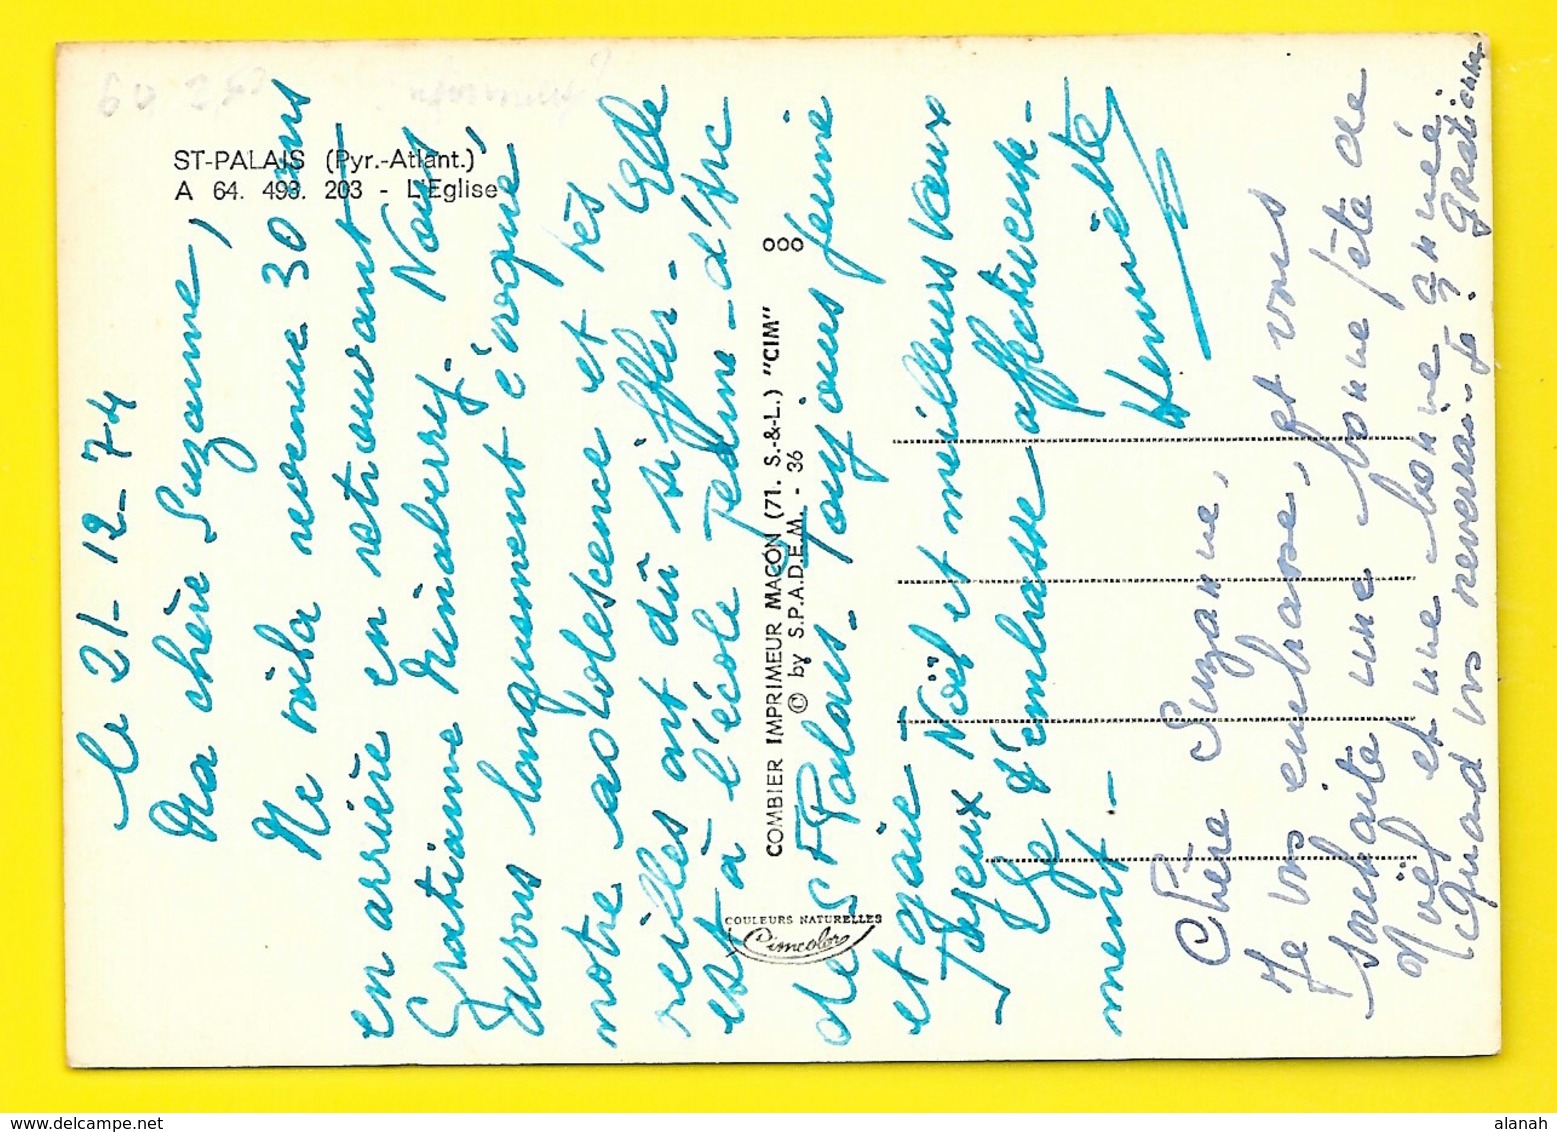 ST-PALAIS (Pyr.-Atlant.)
A 64. 493. 203 - L'Eglise
le 21-12-74
Ma chère Suzanne,
Me voilà revenue 30 ans
en arrière en retrouvant
Gratianne Minaberry. Nous
avons longuement évoqué,
notre adolescence et tes
reilles ont dû siffler. Elle
est à l'école Jeanne-d'Arc
de St Palais. Toujours jeune
et gaie -
Joyeux Noël et meilleurs vœux
Je t'embrasse affectueuse-
ment -
Henriette
Chère Suzanne,
Je vs embrasse, et vous
souhaite une bonne fête de
Noël et une bonne année
Quand vs reverrai-je? Gratianne
COMBIER IMPRIMEUR MACON (71. S.-&-L.) "CIM"
© by S.P.A.D.E.M. - 36
COULEURS NATURELLES
Cimcolor
alanah